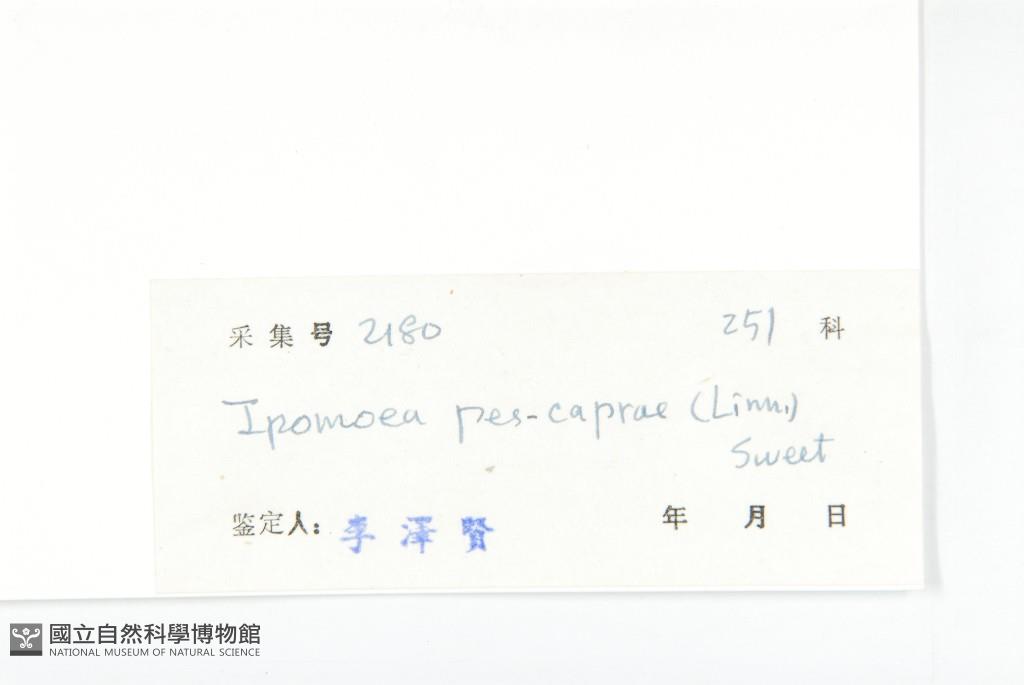 采集号 2180 251 科
Ipomoea pes-caprae (Linn.)
Sweet
鉴定人: 李澤賢 年 月 日
國立自然科學博物館
NATIONAL MUSEUM OF NATURAL SCIENCE